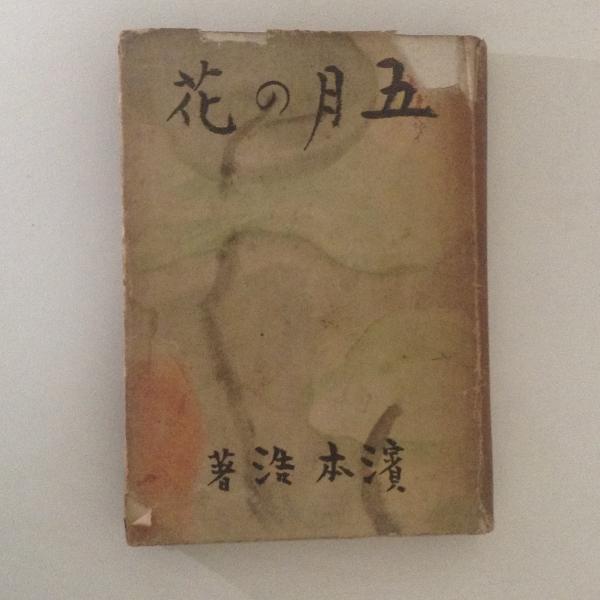 五月の花
濱本浩著